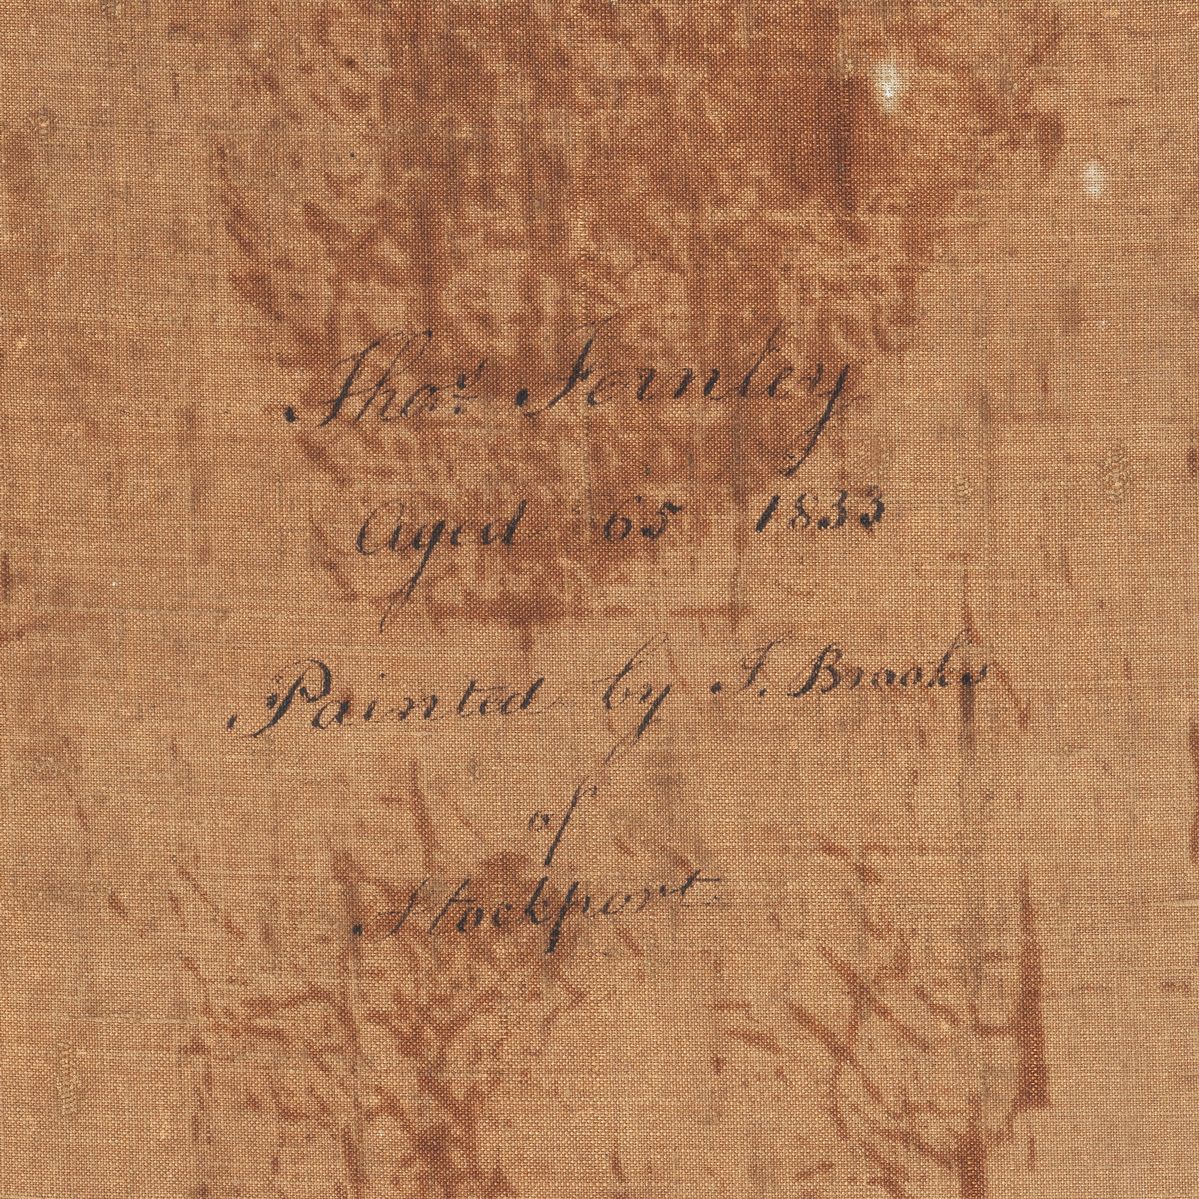 Thos. Fernley
Aged 65 1833
Painted by T. Brooks
of
Stockport